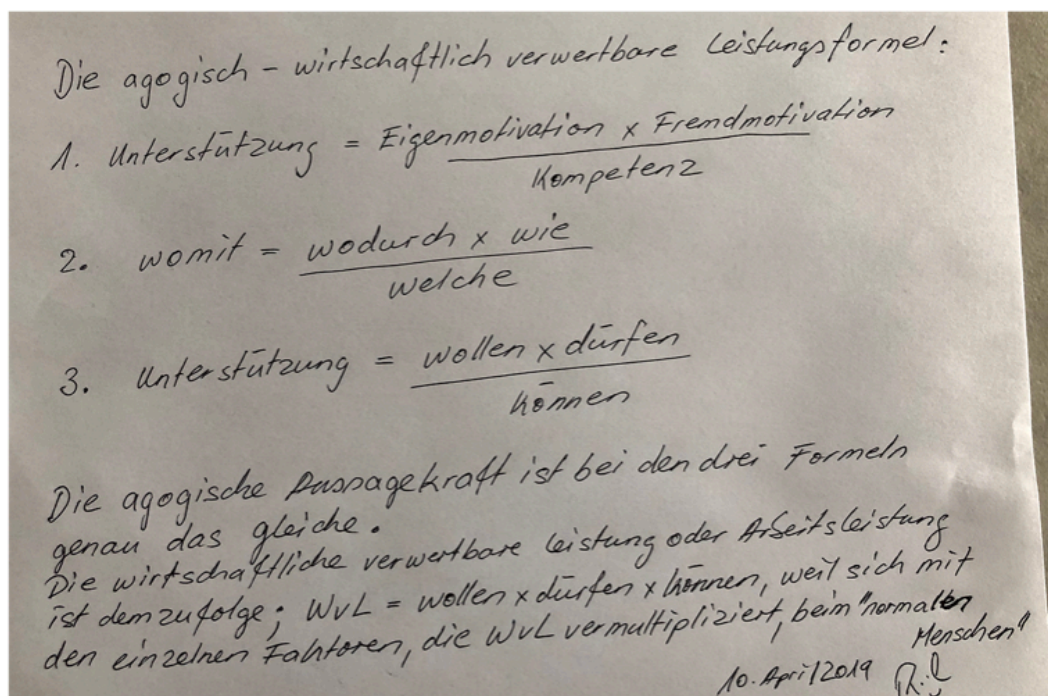 Die agogisch - wirtschaftlich verwertbare Leistungsformel:
1. Unterstützung = Eigenmotivation x Fremdmotivation
Kompetenz
2. womit = wodurch x wie
welche
3. Unterstützung = wollen x dürfen
können
Die agogische Aussagekraft ist bei den drei Formeln
genau das gleiche.
Die wirtschaftliche verwertbare Leistung oder Arbeitsleistung
ist demzufolge; WvL = wollen x dürfen x können, weil sich mit
den einzelnen Faktoren, die WvL vermultipliziert, beim "normalen
Menschen"
10. April 2019